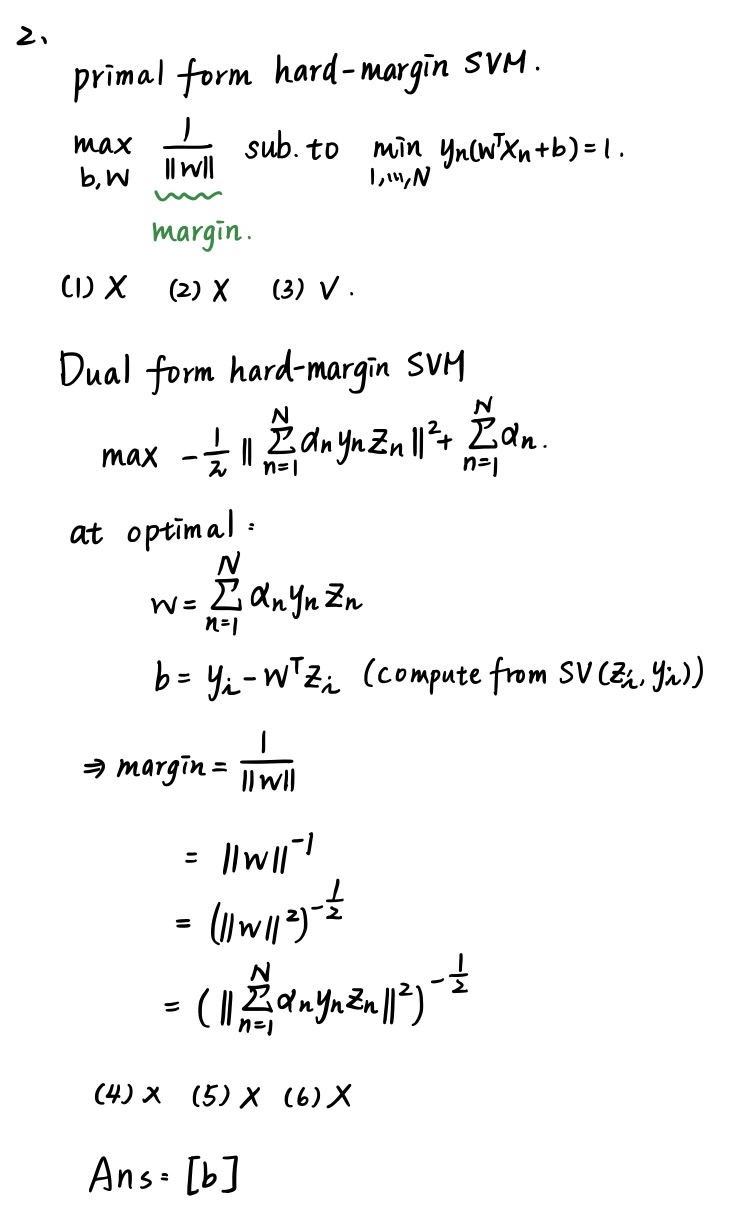 2、
primal form hard-margin SVM.
max b,W 1/||W|| sub. to min 1,...,N yn(WᵀXn+b)=1.
margin.
(1) X (2) X (3) V.
Dual form hard-margin SVM
max -1/2 || Σ_{n=1}^{N} αn yn Zn ||² + Σ_{n=1}^{N} αn.
at optimal:
W = Σ_{n=1}^{N} αn yn Zn
b = yi - WᵀZi (compute from SV (Zi, yi))
⇒ margin = 1/||W||
= ||W||⁻¹
= (||W||²)^{-1/2}
= (|| Σ_{n=1}^{N} αn yn Zn ||²)^{-1/2}
(4) X (5) X (6) X
Ans: [b]